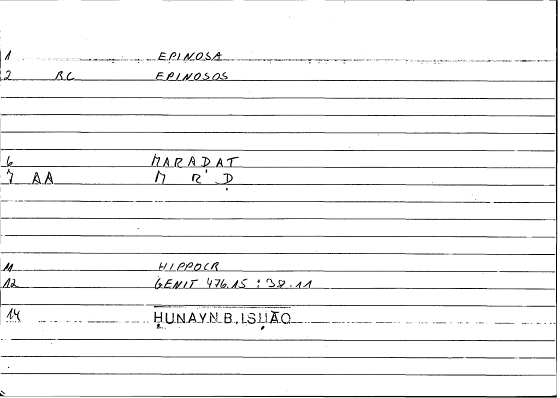 1 EPINOSA
2 RC EPINOSOS
6 MARADAT
7 AA M R' Ḍ
11 HIPPOCR
12 GENIT 476.15 : 38.11
14 ḤUNAYN B. ISḤĀQ